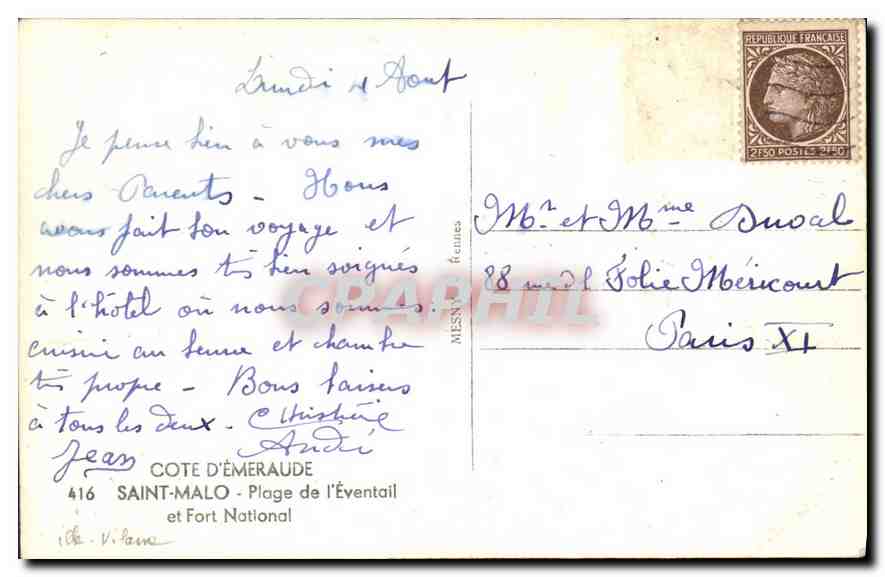 Lundi 4 Aout
Je pense bien à vous mes
chers Parents - Nous
avons fait bon voyage et
nous sommes très bien soignés
à l'hôtel où nous sommes.
cuisine au beurre et chambre
très propre - Bons baisers
à tous les deux. Christiane
Jean André
COTE D'ÉMERAUDE
416 SAINT-MALO - Plage de l'Éventail
et Fort National
Ille-Vilaine
MESNY Rennes
REPUBLIQUE FRANÇAISE
2F50 POSTES 2F50
Mr et Mme Duval
88 rue d l Folie Méricourt
Paris XI
CPAPHIL